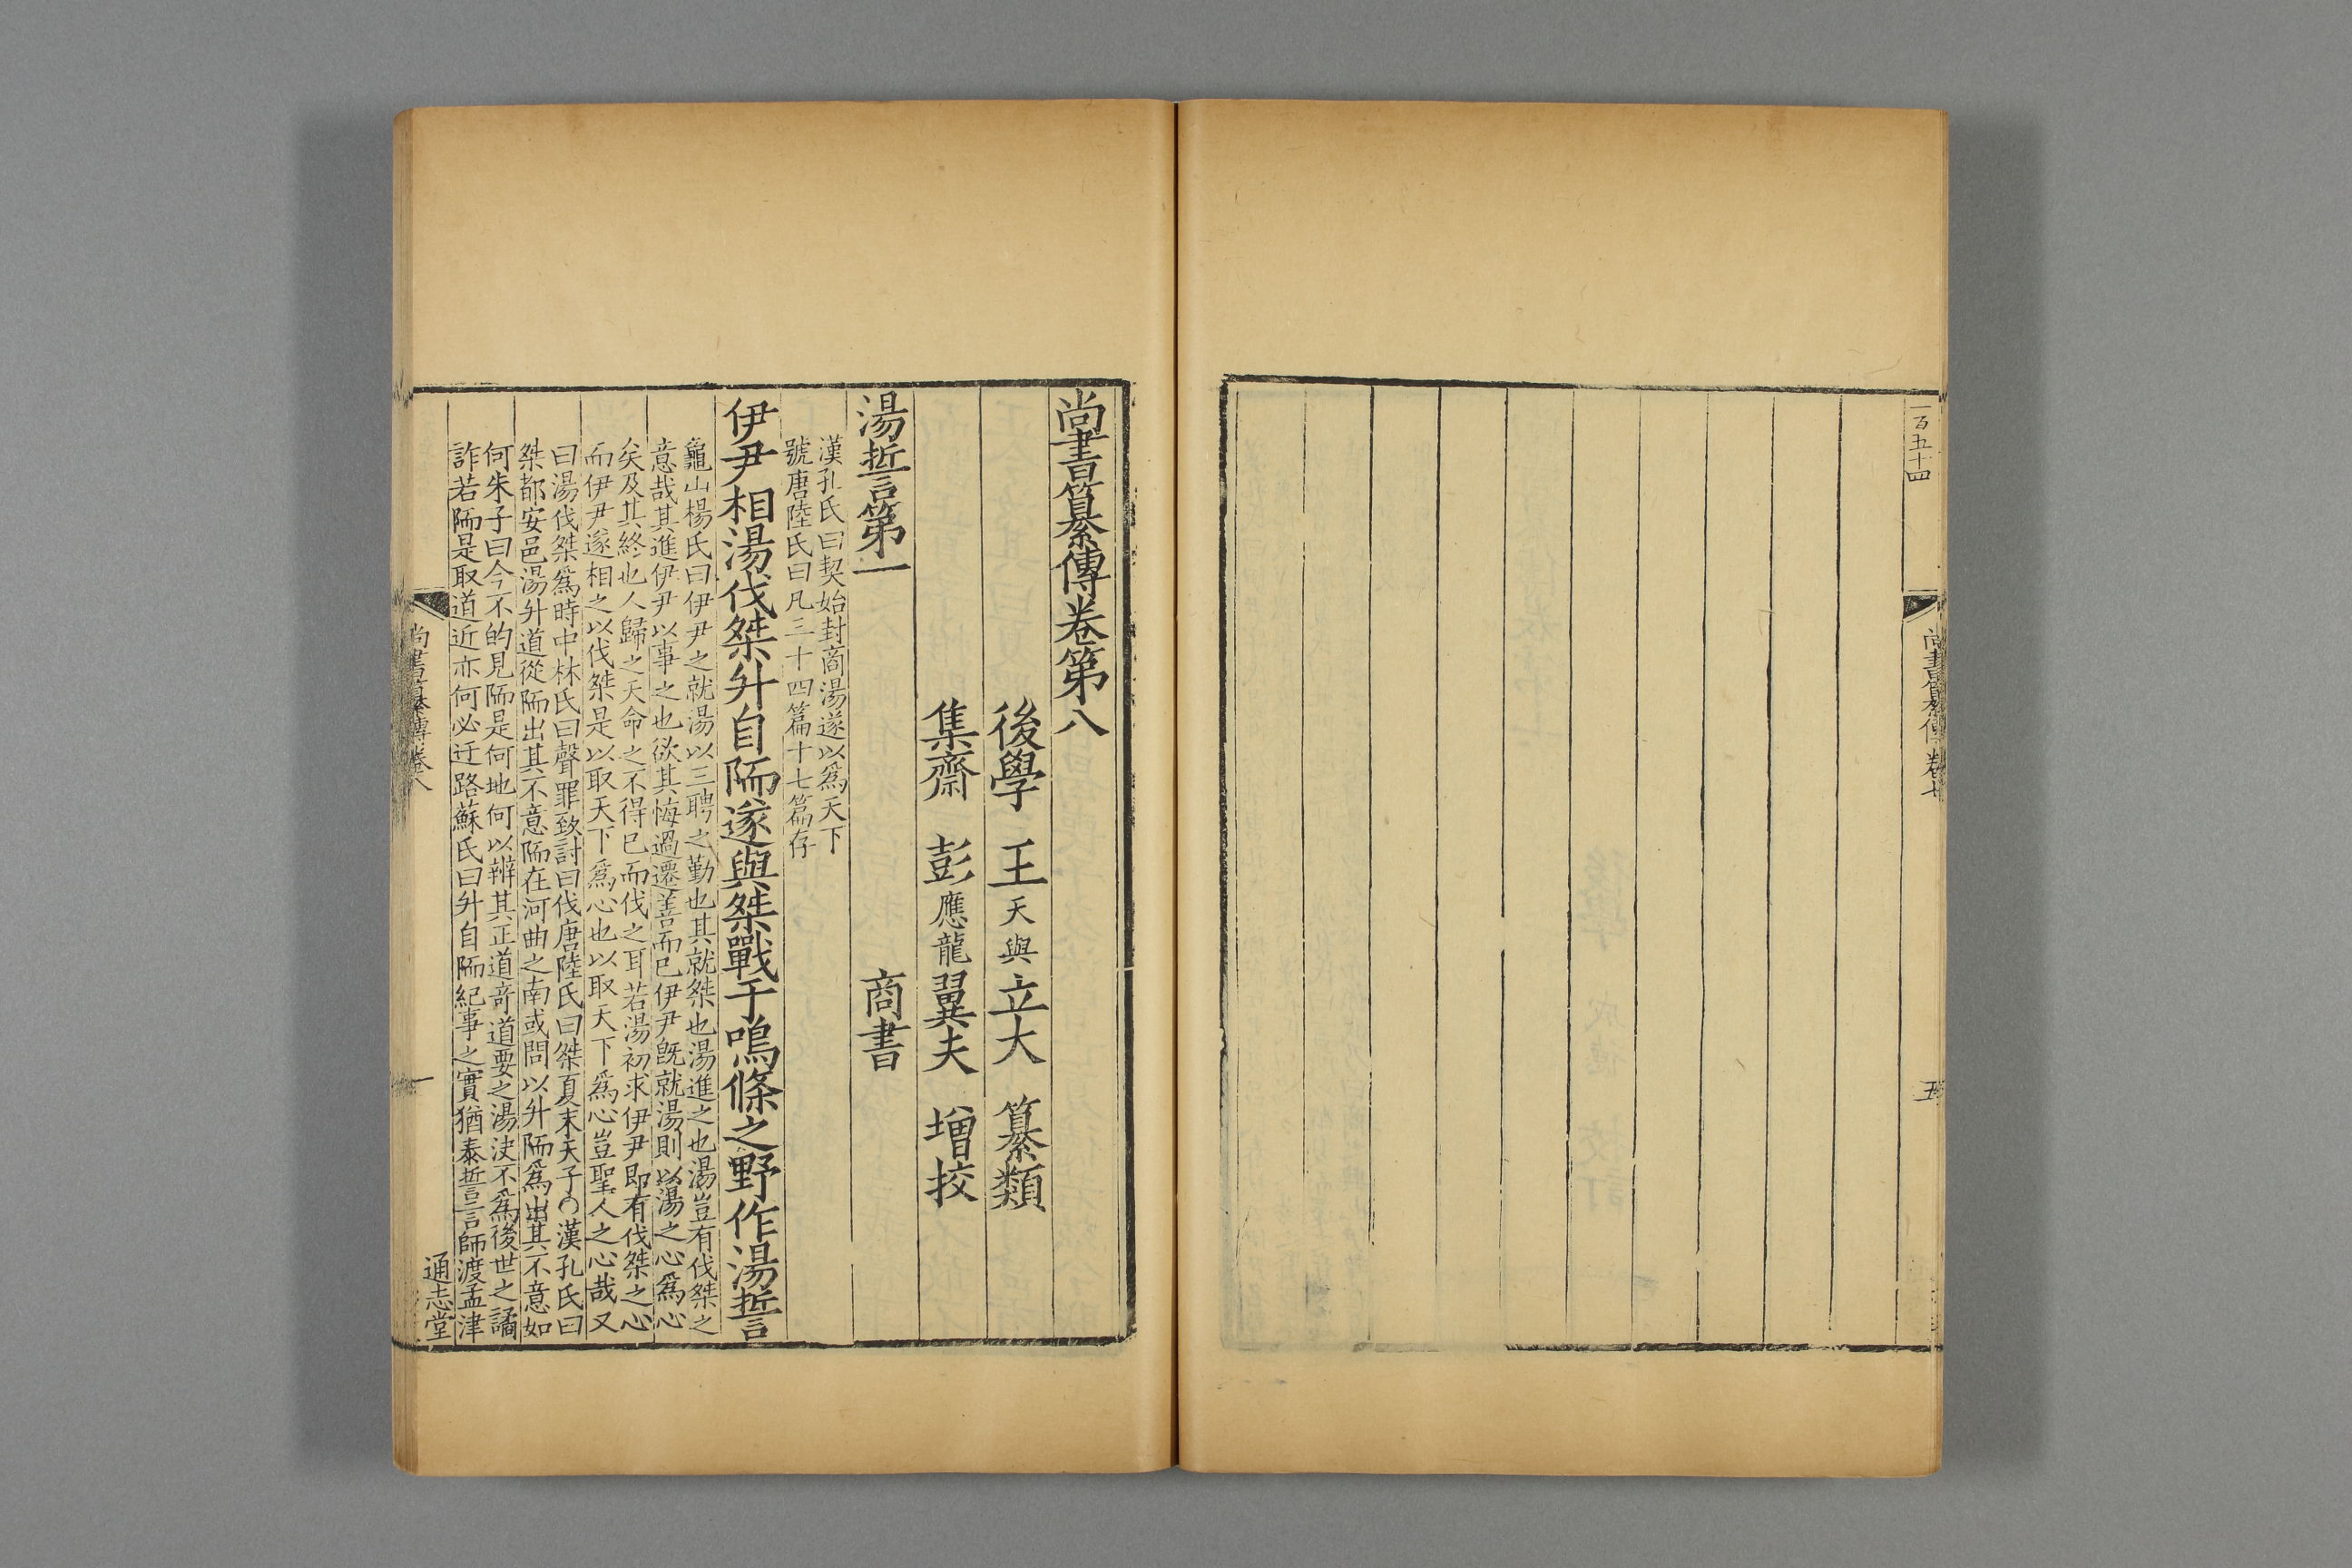 一百五十四
尚書纂傳卷七
尚書纂傳卷第八
後學 王天與立大 纂類
集齋 彭應龍翼夫 增挍
湯誓第一 商書
漢孔氏曰契始封商湯遂以爲天下
號唐陸氏曰凡三十四篇十七篇存
伊尹相湯伐桀升自陑遂與桀戰于鳴條之野作湯誓
龜山楊氏曰伊尹之就湯以三聘之勤也其就桀也湯進之也湯豈有伐桀之
意哉其進伊尹以事之也欲其悔過遷善而已伊尹旣就湯則以湯之心爲心
矣及其終也人歸之天命之不得已而伐之耳若湯初求伊尹即有伐桀之心
而伊尹遂相之以伐桀是以取天下爲心也以取天下爲心豈聖人之心哉又
曰湯伐桀爲時中林氏曰聲罪致討曰伐唐陸氏曰桀夏末天子○漢孔氏曰
桀都安邑湯升道從陑出其不意陑在河曲之南或問以升陑爲出其不意如
何朱子曰今不的見陑是何地何以辨其正道竒道要之湯决不爲後世之譎
詐若陑是取道近亦何必迂路蘇氏曰升自陑紀事之實猶泰誓言師渡孟津
尚書纂傳卷八
一
通志堂